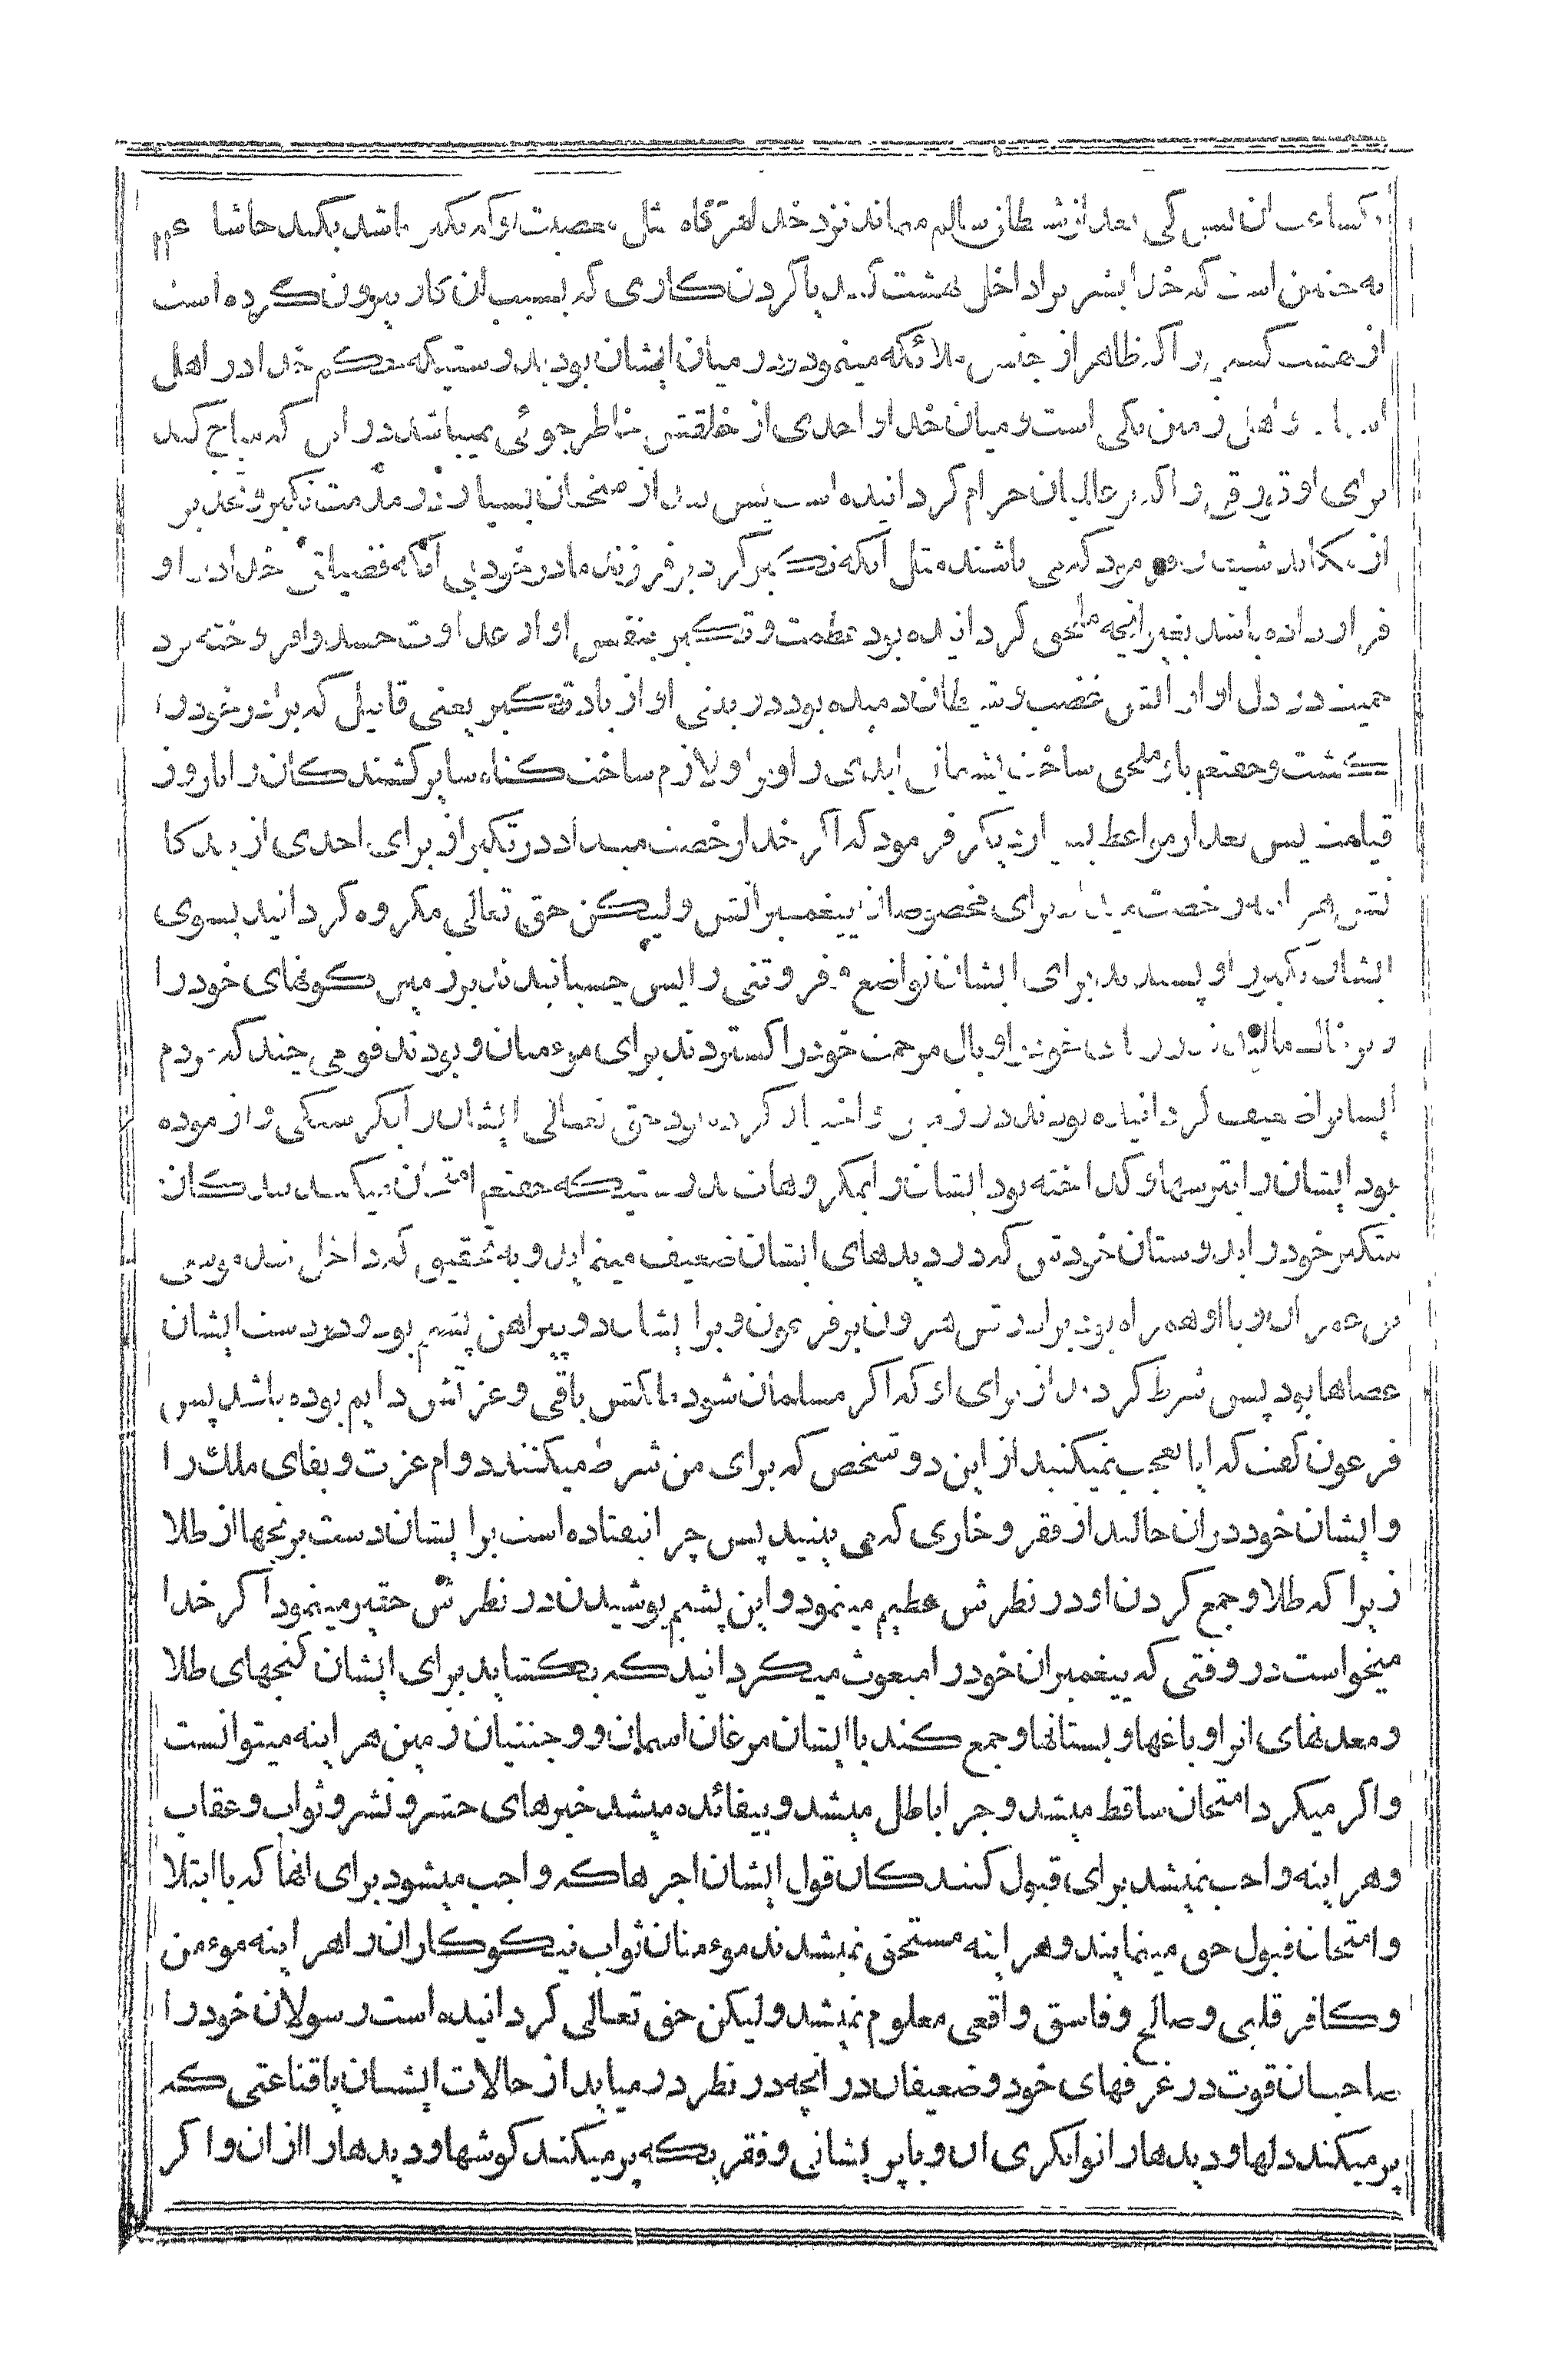 یکساعت ان پس کی بعد از شیطان سالم میماند نزد خدا هرگاه مثل معصیت او که تکبر باشد بکند حاشا
نه چنین است که خدا بشر را داخل بهشت کند با کردن کاری که بسبب ان کار بیرون کرده است
از بهشت کسی را که ظاهر از جنس ملائکه مینمود و در میان ایشان بود بدرستیکه حکم خدا در اهل
و اهل زمین یکی است و میان خدا و احدی از خلقش خاطر جوئی نمیباشد در این که مباح کند
برای او قرقی را که بر عالمیان حرام گردانیده است پس بعد از سخنان بسیار در مذمت تکبر و تحذیر
از مکاید شیطان فرمود که می باشند مثل انکه تکبر کرد بر فرزند مادر خود بی آنکه فضیلتی خدا در او
قرار داده باشد بغیر انچه ملحق گردانیده بود عظمت و تکبر بنفس او از عداوت حسد و افروخته بود
حمیت در دل او از اتش غضب و شیطان دمیده بود در بدنی او از باد تکبر یعنی قابیل که برادر خود را
کشت و حقتعالی باو ملحق ساخت پشیمانی ابدی را و برا و لازم ساخت کناه سایر کشندکان را تا روز
قیامت پس بعد از مواعظ بسیار دیگر فرمود که اگر خدا رخصت میداد در تکبر از برای احدی از بندکا
نش هر اینه رخصت میداد برای مخصوصان پیغمبرانش ولیکن حق تعالی مکروه گردانید بسوی
ایشان تکبر را و پسندید برای ایشان تواضع و فروتنی را پس چسبانیدند بر زمین کونهای خود را
و بر خاک مالیدند روهای خود را و بال مرحمت خود را کستردند برای موءمنان و بودند قومی چند که مردم
ایشانرا ضعیف گردانیده بودند در زمین و اختیار کرده بود حق تعالی ایشان را بکرسنکی و ازموده
بود ایشان را بترسها و کداخته بود ایشان را بمکروهات بدرستیکه حقتعالی امتحان میکند بندکان
متکبر خود را بدوستان خودش که در دیدهای ایشان ضعیف مینمایند و به تحقیق که داخل شد موسی
بن عمران و با او همراه بود برادرش هرون بر فرعون و برایشان دو پیراهن پشم بود و در دست ایشان
عصاها بود پس شرط کردند از برای او که اگر مسلمان شود ملکش باقی و عزتش دایم بوده باشد پس
فرعون گفت که ایا تعجب نمیکنید از این دو شخص که برای من شرط میکنند دوام عزت و بقای ملک را
و ایشان خود در ان حالند از فقر و خاری که می بینید پس چرا نیفتاده است برا یشان دست برنجها از طلا
زیرا که طلا و جمع کردن او در نظرش عظیم مینمود و این پشم پوشیدن در نظرش حقیر مینمود اگر خدا
میخواست در وقتی که پیغمبران خود را مبعوث میگردانید که بکشاید برای ایشان کنجهای طلا
و معدنهای انرا و باغها و بستانها و جمع کند با ایشان مرغان اسمان و وجنتیان زمین هر اینه میتوانست
و اگر میکرد امتحان ساقط میشد و جرا باطل میشد و بیفائده میشد خبرهای حشر و نشر و ثواب و عقاب
و هر اینه واجب نمیشد برای قبول کنندکان قول ایشان اجرها که واجب میشود برای انها که با ابتلا
و امتحان قبول حق مینمایند و هر اینه مستحق نمیشدند موءمنان ثواب نیکوکاران را هر اینه موءمن
و کافر قلبی و صالح و فاسق واقعی معلوم نمیشد ولیکن حق تعالی گردانیده است رسولان خود را
صاحبان قوت در عزفهای خود و ضعیفان در انچه در نظر در میاید از حالات ایشان با قناعتی که
پر میکند دلها و دیدهارا توانکری ان و با پریشانی و فقریکه پر میکند کوشها و دیدهارا از ان و اگر